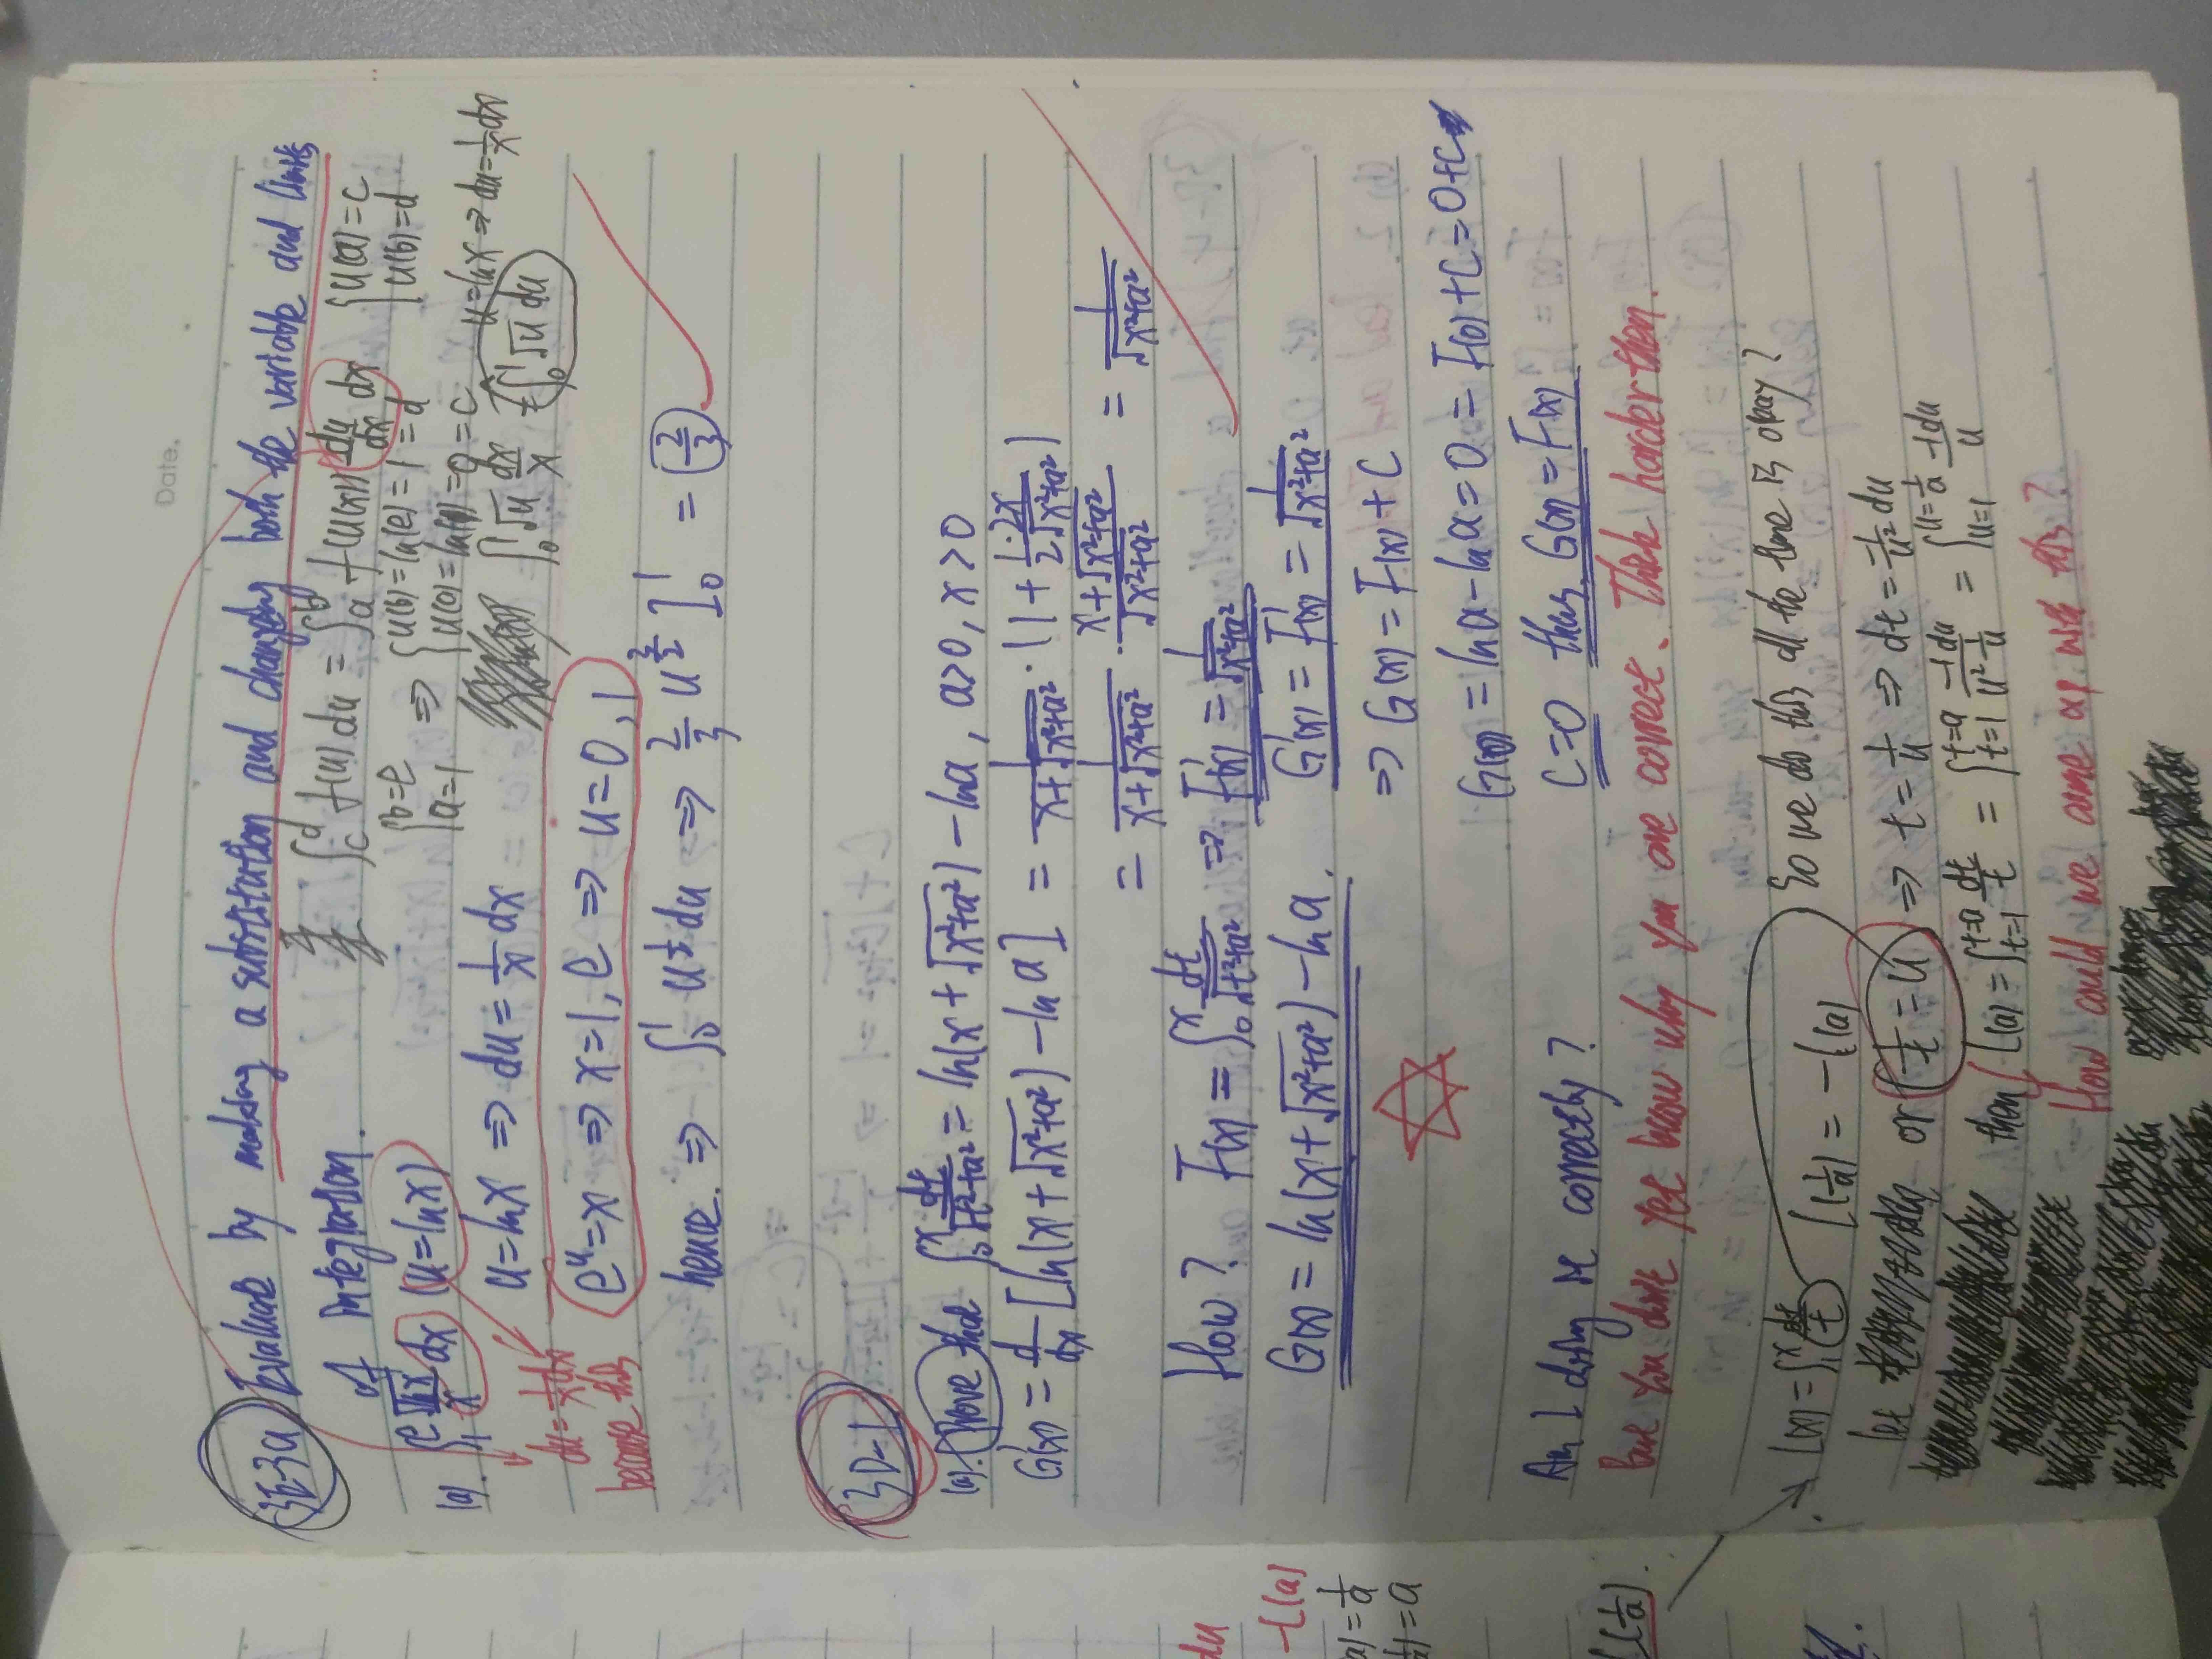 Date.
3E-3a) Evaluate by making a substitution and changing both the variable and limits
of integration.
∫_c^d f(u) du = ∫_a^b f(u(x)) du/dx dx { u(a)=c
u(b)=d
(a). ∫_1^e √lnx/x dx (u=lnx)
{ b=e
a=1 ⇒ { u(b)=ln(e)=1=d
u(a)=ln(1)=0=c
du=1/x dx
become this
u=lnx ⇒ du=1/x dx
∫_0^1 √u dx/x ≠ ∫_0^1 √u du
u=lnx ⇒ du=1/x dx
e^u=x ⇒ x=1, e ⇒ u=0, 1
hence. ⇒ ∫_0^1 u^½ du ⇒ 2/3 u^{3/2} ]_0^1 = (2/3)
3D-1
(a). Prove that ∫_0^x dt/√t²+a² = ln(x+√x²+a²) - lna, a>0, x>0
G'(x) = d/dx [ln(x+√x²+a²) - ln a] = 1/x+√x²+a² · (1 + 1·2x/2√x²+a²)
= 1/x+√x²+a² · x+√x²+a²/√x²+a² = 1/√x²+a²
How? F(x) = ∫_0^x dt/√t²+a² ⇒ F'(x) = 1/√x²+a²
G(x) = ln(x+√x²+a²) - ln a. G'(x) = F'(x) = 1/√x²+a²
⇒ G(x) = F(x) + C
G(0) = ln a - ln a = 0 = F(0) + C = 0 + C
C=0 thus G(x) = F(x)
Am I doing it correctly?
but You dont yet know why you are correct. Think harder then.
L(x) = ∫_1^x dt/t L(1/a) = -L(a) So we do this all the time is okay?
let or 1/t = u ⇒ t = 1/u ⇒ dt = -1/u² du
then L(a) = ∫_{t=1}^{t=a} dt/t = ∫_{t=1}^{t=a} -1du/u² 1/u = ∫_{u=1}^{u=1/a} -1du/u
How could we come up with this?
du
-L(a)
a) = 1/a
b) = a
L(1/a).